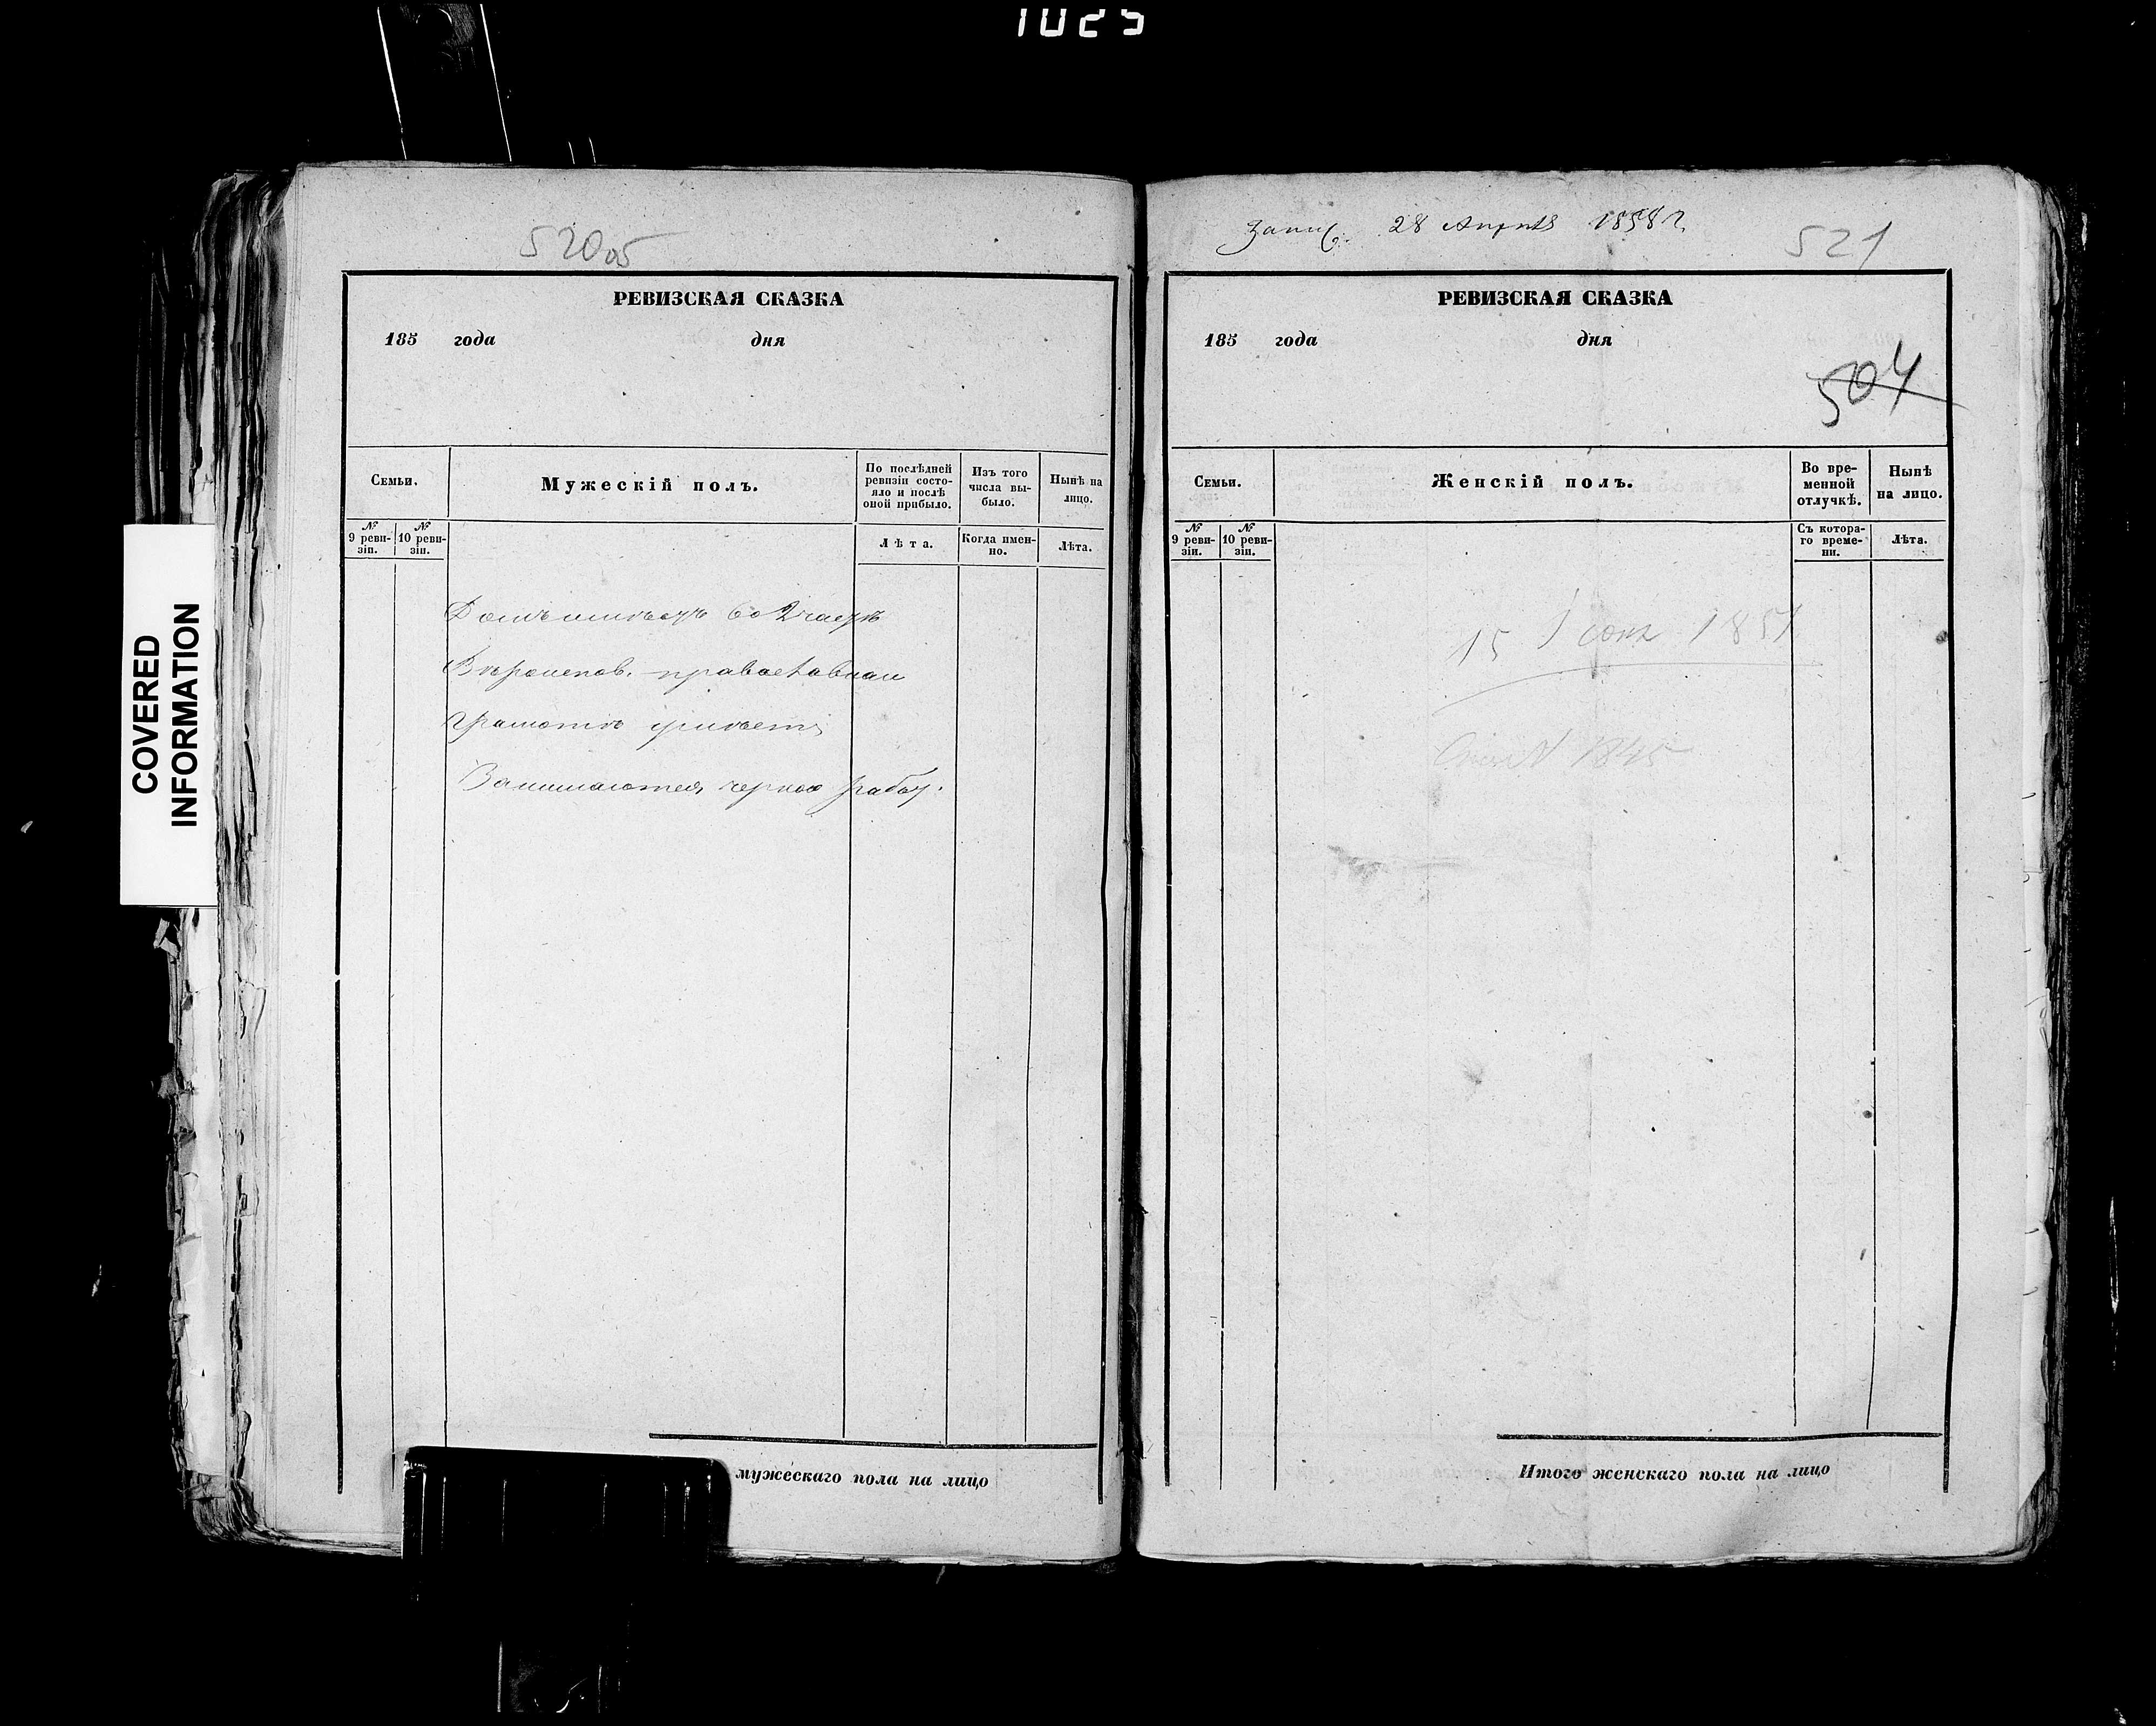 1025
COVERED
INFORMATION
520 об
РЕВИЗСКАЯ СКАЗКА
185 года дня
Семьи.
Мужескій полъ.
По послѣдней
ревизіи состо-
яло и послѣ
оной прибыло.
Изъ того
числа вы-
было.
Нынѣ на
лицо.
№
9 реви-
зіи.
№
10 реви-
зіи.
Лѣта.
Когда имен-
но.
Лѣта.
Домъ имѣетъ во 2 части
Вѣроисповѣд. православнаи
Грамотѣ умѣетъ
Занимаются черною работ.
мужескаго пола на лицо
Запис. 28 Апрѣля 1858 г.
521
РЕВИЗСКАЯ СКАЗКА
185 года дня
504
Семьи.
Женскій полъ.
Во вре-
менной
отлучкѣ.
Нынѣ
на лицо.
№
9 реви-
зіи.
№
10 реви-
зіи.
Съ котора-
го време-
ни.
Лѣта.
15 1851
1845
Итого женскаго пола на лицо